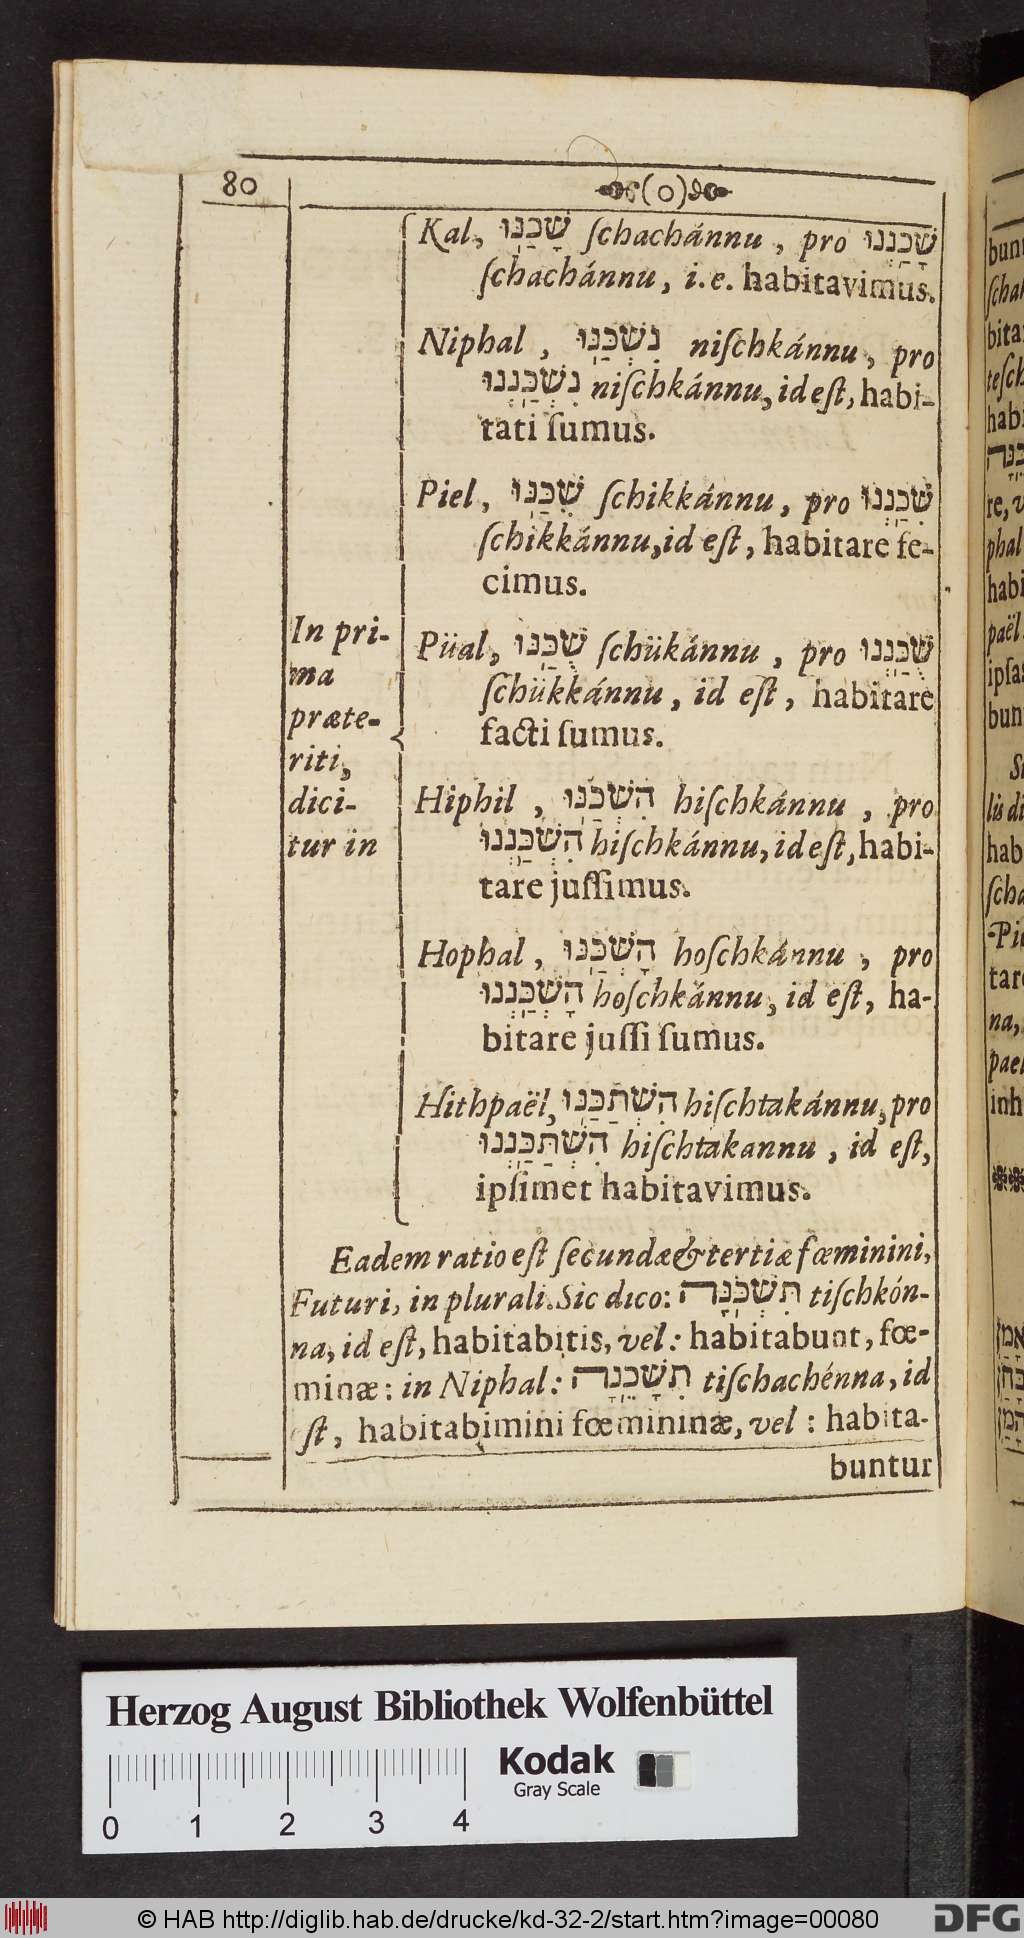 80 (o)
Kal, שָׁכַנּוּ ſchachánnu, pro שָׁכַנְנוּ
ſchachánnu, i.e. habitavimus.
Niphal, נִשְׁכַּנּוּ niſchkánnu, pro
נִשְׁכַּנְנוּ niſchkánnu, id eſt, habi-
tati ſumus.
Piel, שִׁכַּנּוּ ſchikkánnu, pro שִׁכַּנְנוּ
ſchikkánnu, id eſt, habitare fe-
cimus.
Püal, שֻׁכַּנּוּ ſchükánnu, pro שֻׁכַּנְנוּ
ſchükkánnu, id eſt, habitare
facti ſumus.
Hiphil, הִשְׁכַּנּוּ hiſchkánnu, pro
הִשְׁכַּנְנוּ hiſchkánnu, id eſt, habi-
tare juſſimus.
Hophal, הָשְׁכַּנּוּ hoſchkánnu, pro
הָשְׁכַּנְנוּ hoſchkánnu, id eſt, ha-
bitare juſſi ſumus.
Hithpaël, הִשְׁתַכַּנּוּ hiſchtakánnu, pro
הִשְׁתַּכַּנְנוּ hiſchtakannu, id eſt,
ipſimet habitavimus.
In pri-
ma
præte-
riti,
dici-
tur in
Eadem ratio eſt ſecundæ & tertiæ fœminini,
Futuri, in plurali. Sic dico: תִּשְׁכֹּנָּה tiſchkón-
na, id eſt, habitabitis, vel: habitabunt, fœ-
minæ: in Niphal: תִּשָּׁכֵנָּה tiſchachénna, id
ſt, habitabimini fœmininæ, vel: habita-
buntur
bun
ſcha
bita
teſch
hab
re, v
phal
habi
paël
ipſa
bun
lis di
hab
ſcha
-Pie
tar
na,
pael
inh
Herzog August Bibliothek Wolfenbüttel
Kodak
Gray Scale
0 1 2 3 4
© HAB http://diglib.hab.de/drucke/kd-32-2/start.htm?image=00080
DFG